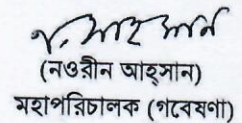 (নওরীন আহ্সান)
মহাপরিচালক (গবেষণা)